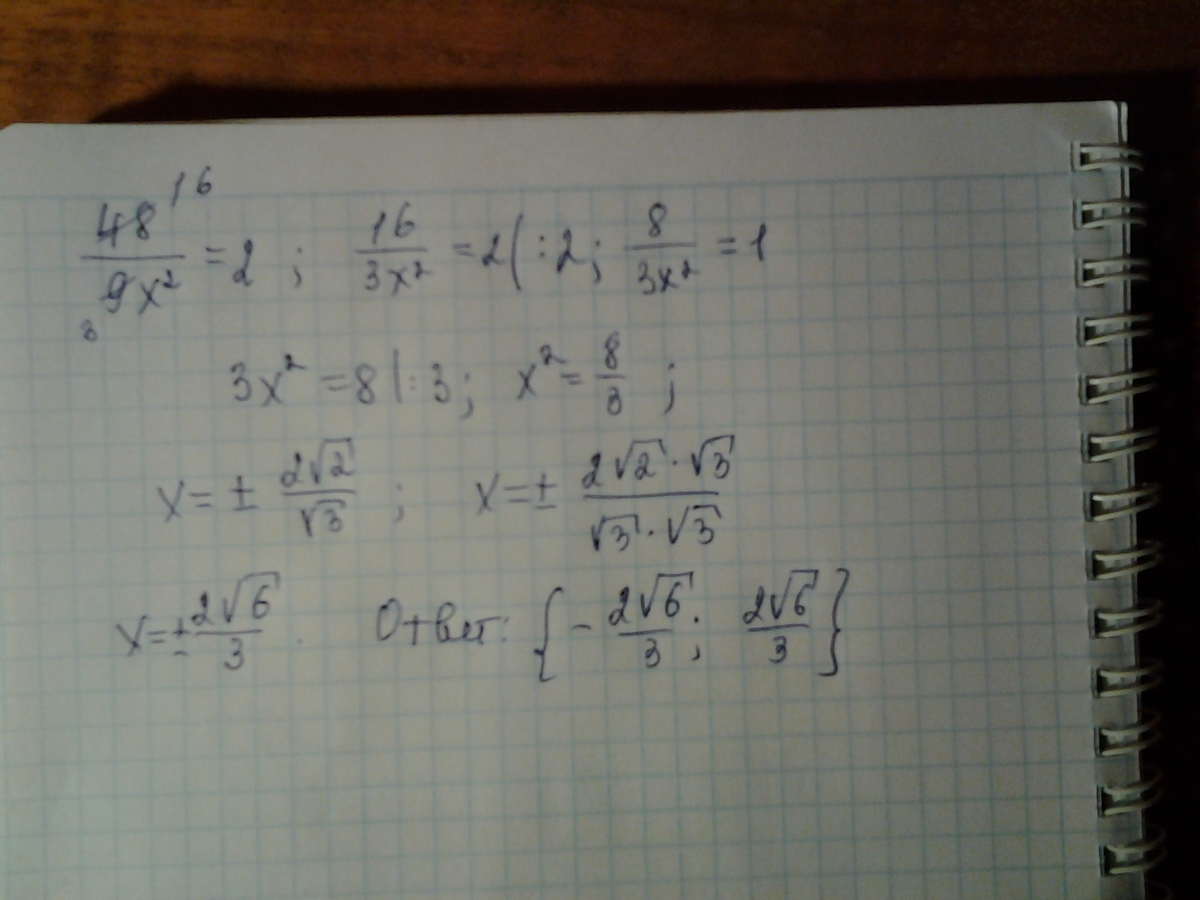 48¹⁶/₃9x² = 2 ; 16/3x² = 2 | :2 ; 8/3x² = 1
3x² = 8 | :3 ; x² = 8/3 ;
x = ± 2√2/√3 ; x = ± 2√2·√3/√3·√3
x = ± 2√6/3 . Ответ: {- 2√6/3 ; 2√6/3}